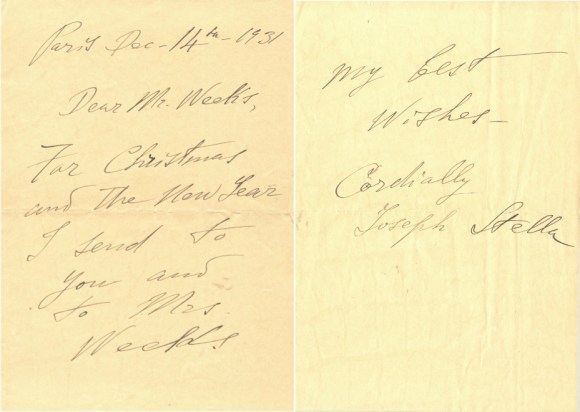 Paris Dec-14th-1931
Dear Mr. Weeks,
For Christmas
and The New Year
I send to
you and
to Mrs.
Weeks
My best
Wishes-
Cordially
Joseph Stella